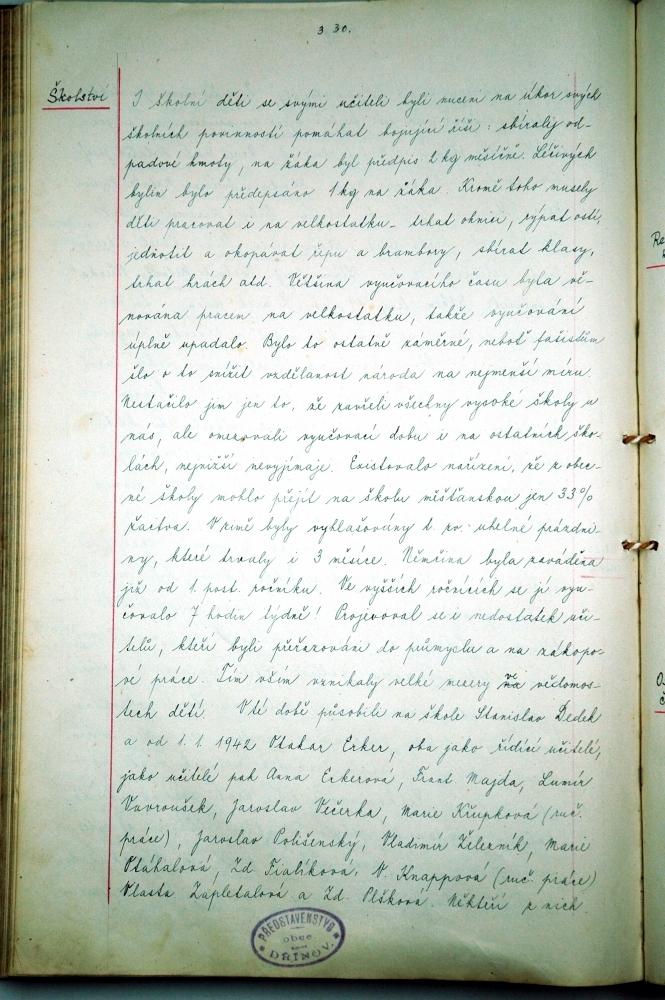 330.
Školství
I školní děti se svými učiteli byli nuceni na úkor svých
školních povinností pomáhat bojující říši: sbíraly od-
padové hmoty, na žáka byl předpis 2 kg měsíčně. Léčivých
bylin bylo předepsáno 1 kg na žáka. Kromě toho musely
děti pracovat i na velkostatku - trhat ohnici, rýpat osti,
jednotit a okopávat řepu a brambory, sbírat klasy,
trhat hrách atd. Většina vyučovacího času byla vě-
nována pracem na velkostatku, takže vyučování
úplně upadalo. Bylo to ostatně záměrné, neboť fašistům
šlo o to snížit vzdělanost národa na nejmenší míru.
Nestačilo jim jen to, že zavřeli všechny vysoké školy u
nás, ale omezovali vyučovací dobu i na ostatních ško-
lách, nejnižší nevyjímaje. Existovalo nařízení, že z obec-
né školy mohlo přejít na školu měšťanskou jen 33%
žactva. V zimě byly vyhlašovány t. zv. uhelné prázdni-
ny, které trvaly i 3 měsíce. Němčina byla zaváděna
již od 1. post. ročníku. Ve vyšších ročnících se jí vyu-
čovalo 7 hodin týdně! Projevoval se i nedostatek uči-
telů, kteří byli přeřazováni do průmyslu a na zákopo-
vé práce. Tím vším vznikaly velké mezery ve vědomos-
tech dětí. V té době působili na škole Stanislav Dedek
a od 1. 1. 1942 Otakar Erker, oba jako řídící učitelé,
jako učitelé pak Anna Erkerová, Frant. Majda, Lumír
Vavroušek, Jaroslav Večerka, Marie Křupková (ruč.
práce), Jaroslav Polišenský, Vladimír Železník, Marie
Otáhalová, Zd. Fialíková, V. Knappová (ruč. práce)
Vlasta Zapletalová a Zd. Olšková. Někteří z nich
PŘEDSTAVENSTVO
obce
DŘÍNOV.